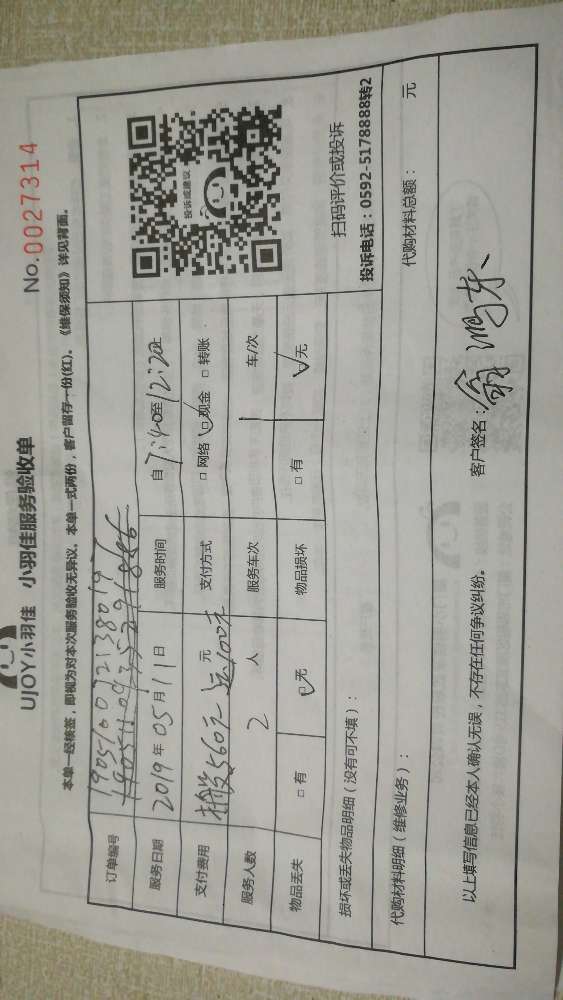 UJOY小羽佳 小羽佳服务验收单
No.0027314
本单一经核签，即视为对本次服务验收无异议，本单一式两份，客户留存一份(红)。《维保须知》详见背面。
订单编号
服务日期 2019年05月11日 服务时间 自7:40至12:20止
支付费用 560元 100元 元 支付方式 □网络 ☑现金 □转账
服务人数 2 人 服务车次 1 车/次
物品丢失 □有 ☑无 物品损坏 □有 ☑无
投诉或建议
扫码评价或投诉
投诉电话：0592-5178888转2
损坏或丢失物品明细（没有可不填）：
代购材料明细（维修业务）： 代购材料总额： 元
以上填写信息已经本人确认无误，不存在任何争议纠纷。 客户签名：